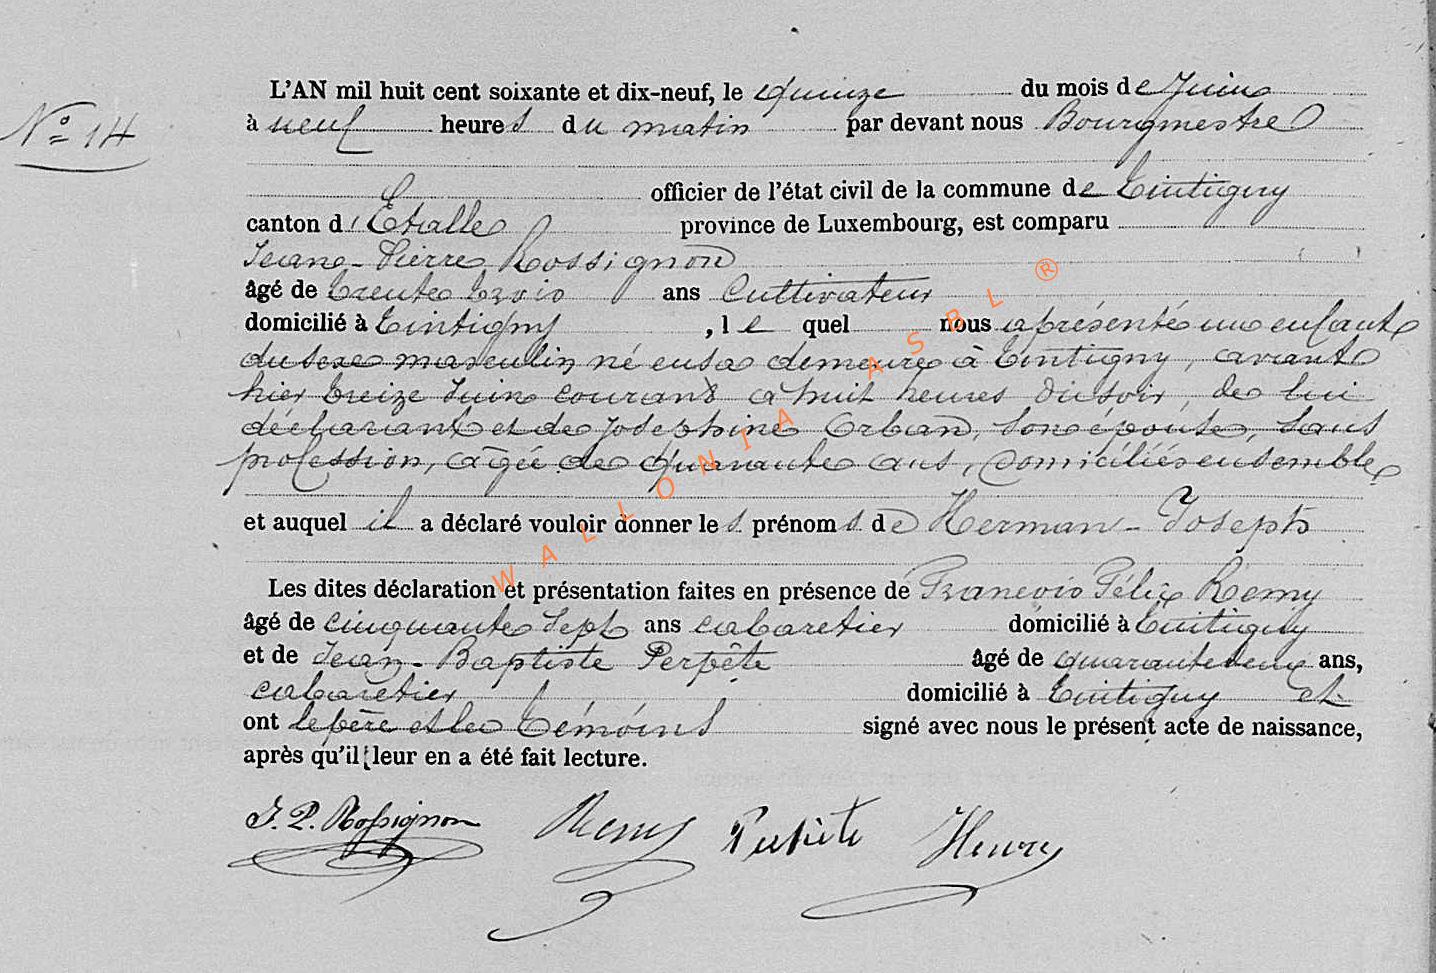 L'AN mil huit cent soixante et dix-neuf, le quinze du mois de Juin
N° 14
à neuf heures du matin par devant nous Bourgmestre
officier de l'état civil de la commune de Tintigny
canton d'Etalle province de Luxembourg, est comparu
Jean-Pierre Rossignon
âgé de trente trois ans Cultivateur
domicilié à Tintigny, lequel nous a présenté un enfant
du sexe masculin né en sa demeure à Tintigny, avant
hier treize Juin courant à huit heures du soir, de lui
déclarant et de Joséphine Orban, son épouse, sans
profession, âgée de quarante ans, domiciliés ensemble
et auquel il a déclaré vouloir donner les prénoms de Herman-Joseph
Les dites déclaration et présentation faites en présence de François Félix Remy
âgé de cinquante sept ans cabaretier domicilié à Tintigny
et de Jean-Baptiste Perpète âgé de quarante deux ans,
cabaretier domicilié à Tintigny et
ont le père et les témoins signé avec nous le présent acte de naissance,
après qu'il leur en a été fait lecture.
J. P. Rossignon Remy Perpète Henry
WALLONIA ASBL ®